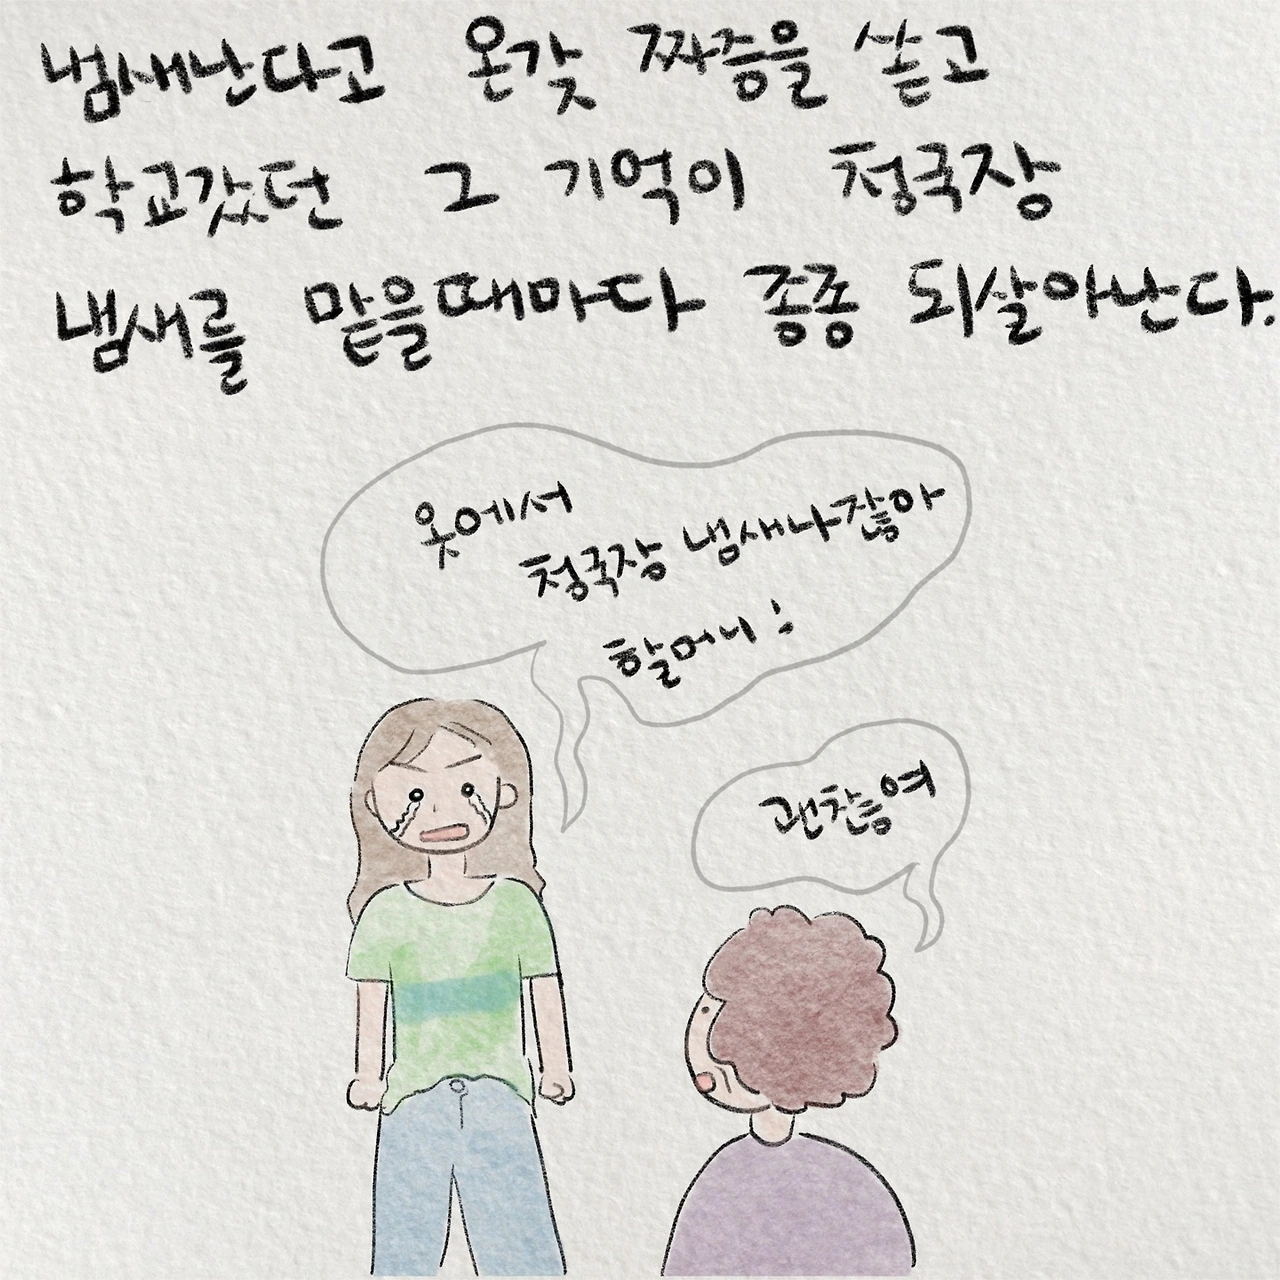 냄새난다고 온갖 짜증을 쏟고
학교갔던 그 기억이 청국장
냄새를 맡을때마다 종종 되살아난다.
옷에서
청국장 냄새나잖아
할머니!
괜찮여